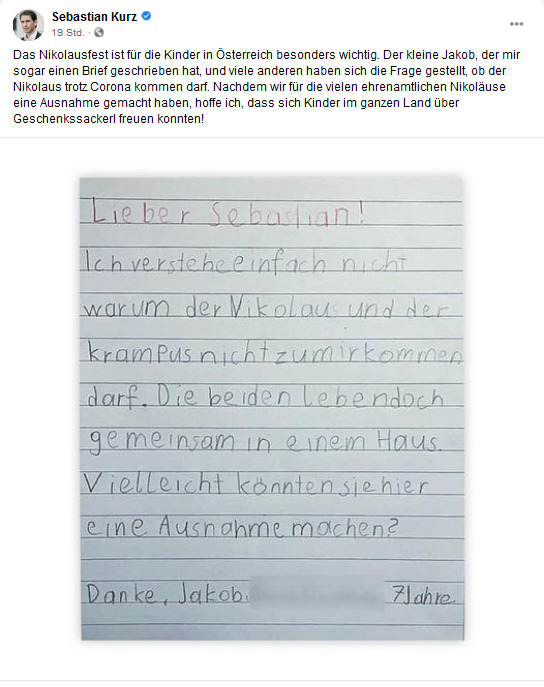 Sebastian Kurz
19 Std. ·
Das Nikolausfest ist für die Kinder in Österreich besonders wichtig. Der kleine Jakob, der mir
sogar einen Brief geschrieben hat, und viele anderen haben sich die Frage gestellt, ob der
Nikolaus trotz Corona kommen darf. Nachdem wir für die vielen ehrenamtlichen Nikoläuse
eine Ausnahme gemacht haben, hoffe ich, dass sich Kinder im ganzen Land über
Geschenkssackerl freuen konnten!
Lieber Sebastian!
Ich verstehe einfach nicht
warum der Vikolaus und der
krampus nicht zu mir kommen
darf. Die beiden leben doch
gemeinsam in einem Haus.
Vielleicht könnten sie hier
eine Ausnahme machen?
Danke, Jakob 7 Jahre